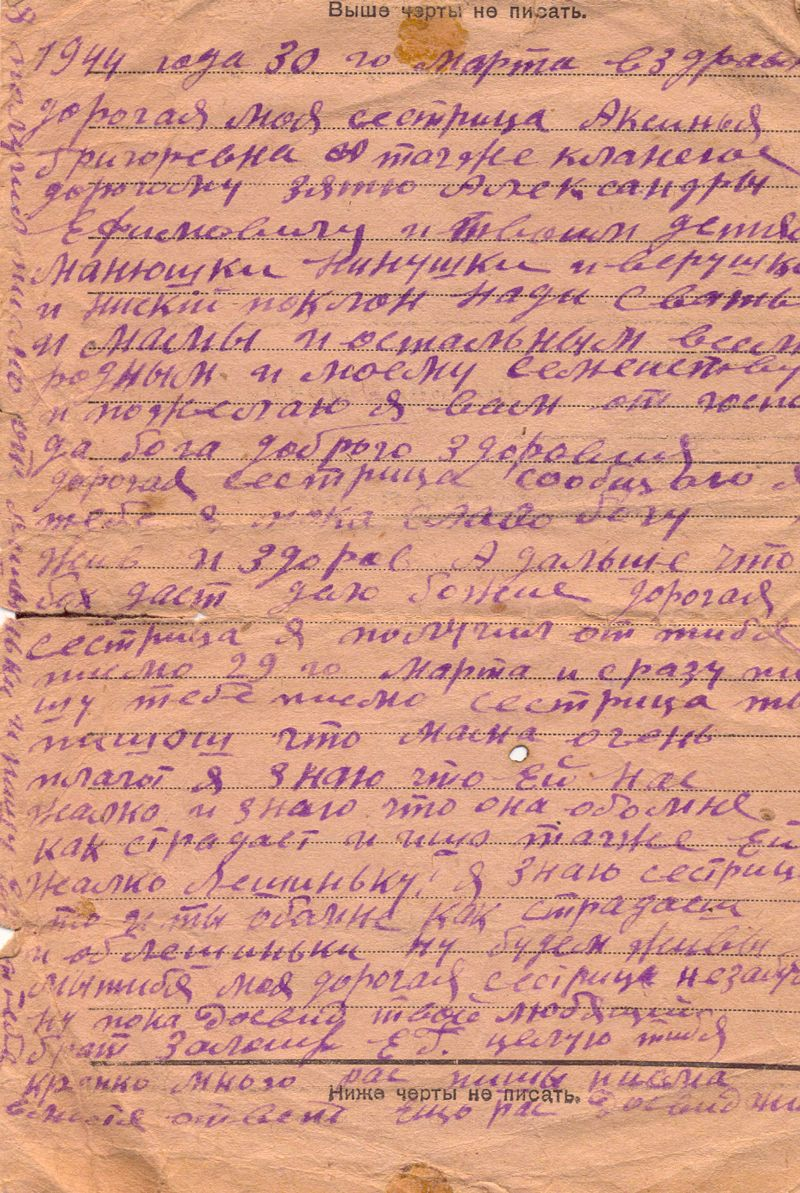 Выше черты не писать.
1944 года 30 го марта вздрав
дорогая моя сестрица Аксинья
григоревна а также кланеюс
дорогому зятю Александры
Ефимовичу и твоим детям
Манюшки нинушки и верушк
и ниский поклон нади сваты
и мамы и остальным всем
родным и моему семейству
и пожелаю я вам от госпо
да бога доброго здоровия
дорогая сестрица сообщаю я
тебе я пока слаао богу
жив и здоров А дальше что
бох даст дело божие дорогая
сестрица я получил от тибя
писмо 29 го марта и сразу пи
шу тебе писмо сестрица ты
пишош что мама очень
плачот я знаю что Ей нас
жалко и знаю что она обомне
как страдает и ишо также Ей
жалко Лешиньку, я знаю сестриц
што и ты обомне как страдаеш
и облешиньки ну будем живы
мытибя моя дорогая сестрица незабуд
ну пока Досвид твой любящий
брат Е Г. целую тибя
крепко много рас пишы писма
Ниже черты не писать.
ответ ищо рас Досвидани
я получил писмо от